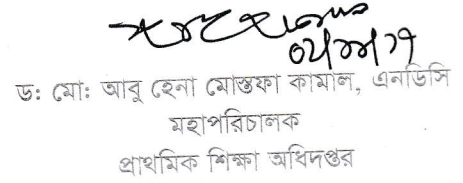 ড: মো: আবু হেনা মোস্তফা কামাল, এনডিসি
মহাপরিচালক
প্রাথমিক শিক্ষা অধিদপ্তর